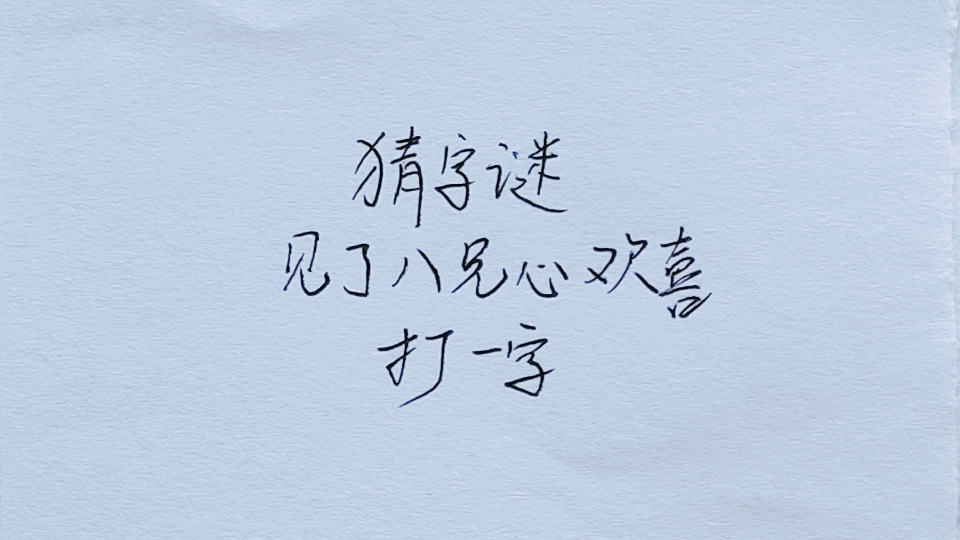 猜字谜
见了八兄心欢喜
打一字